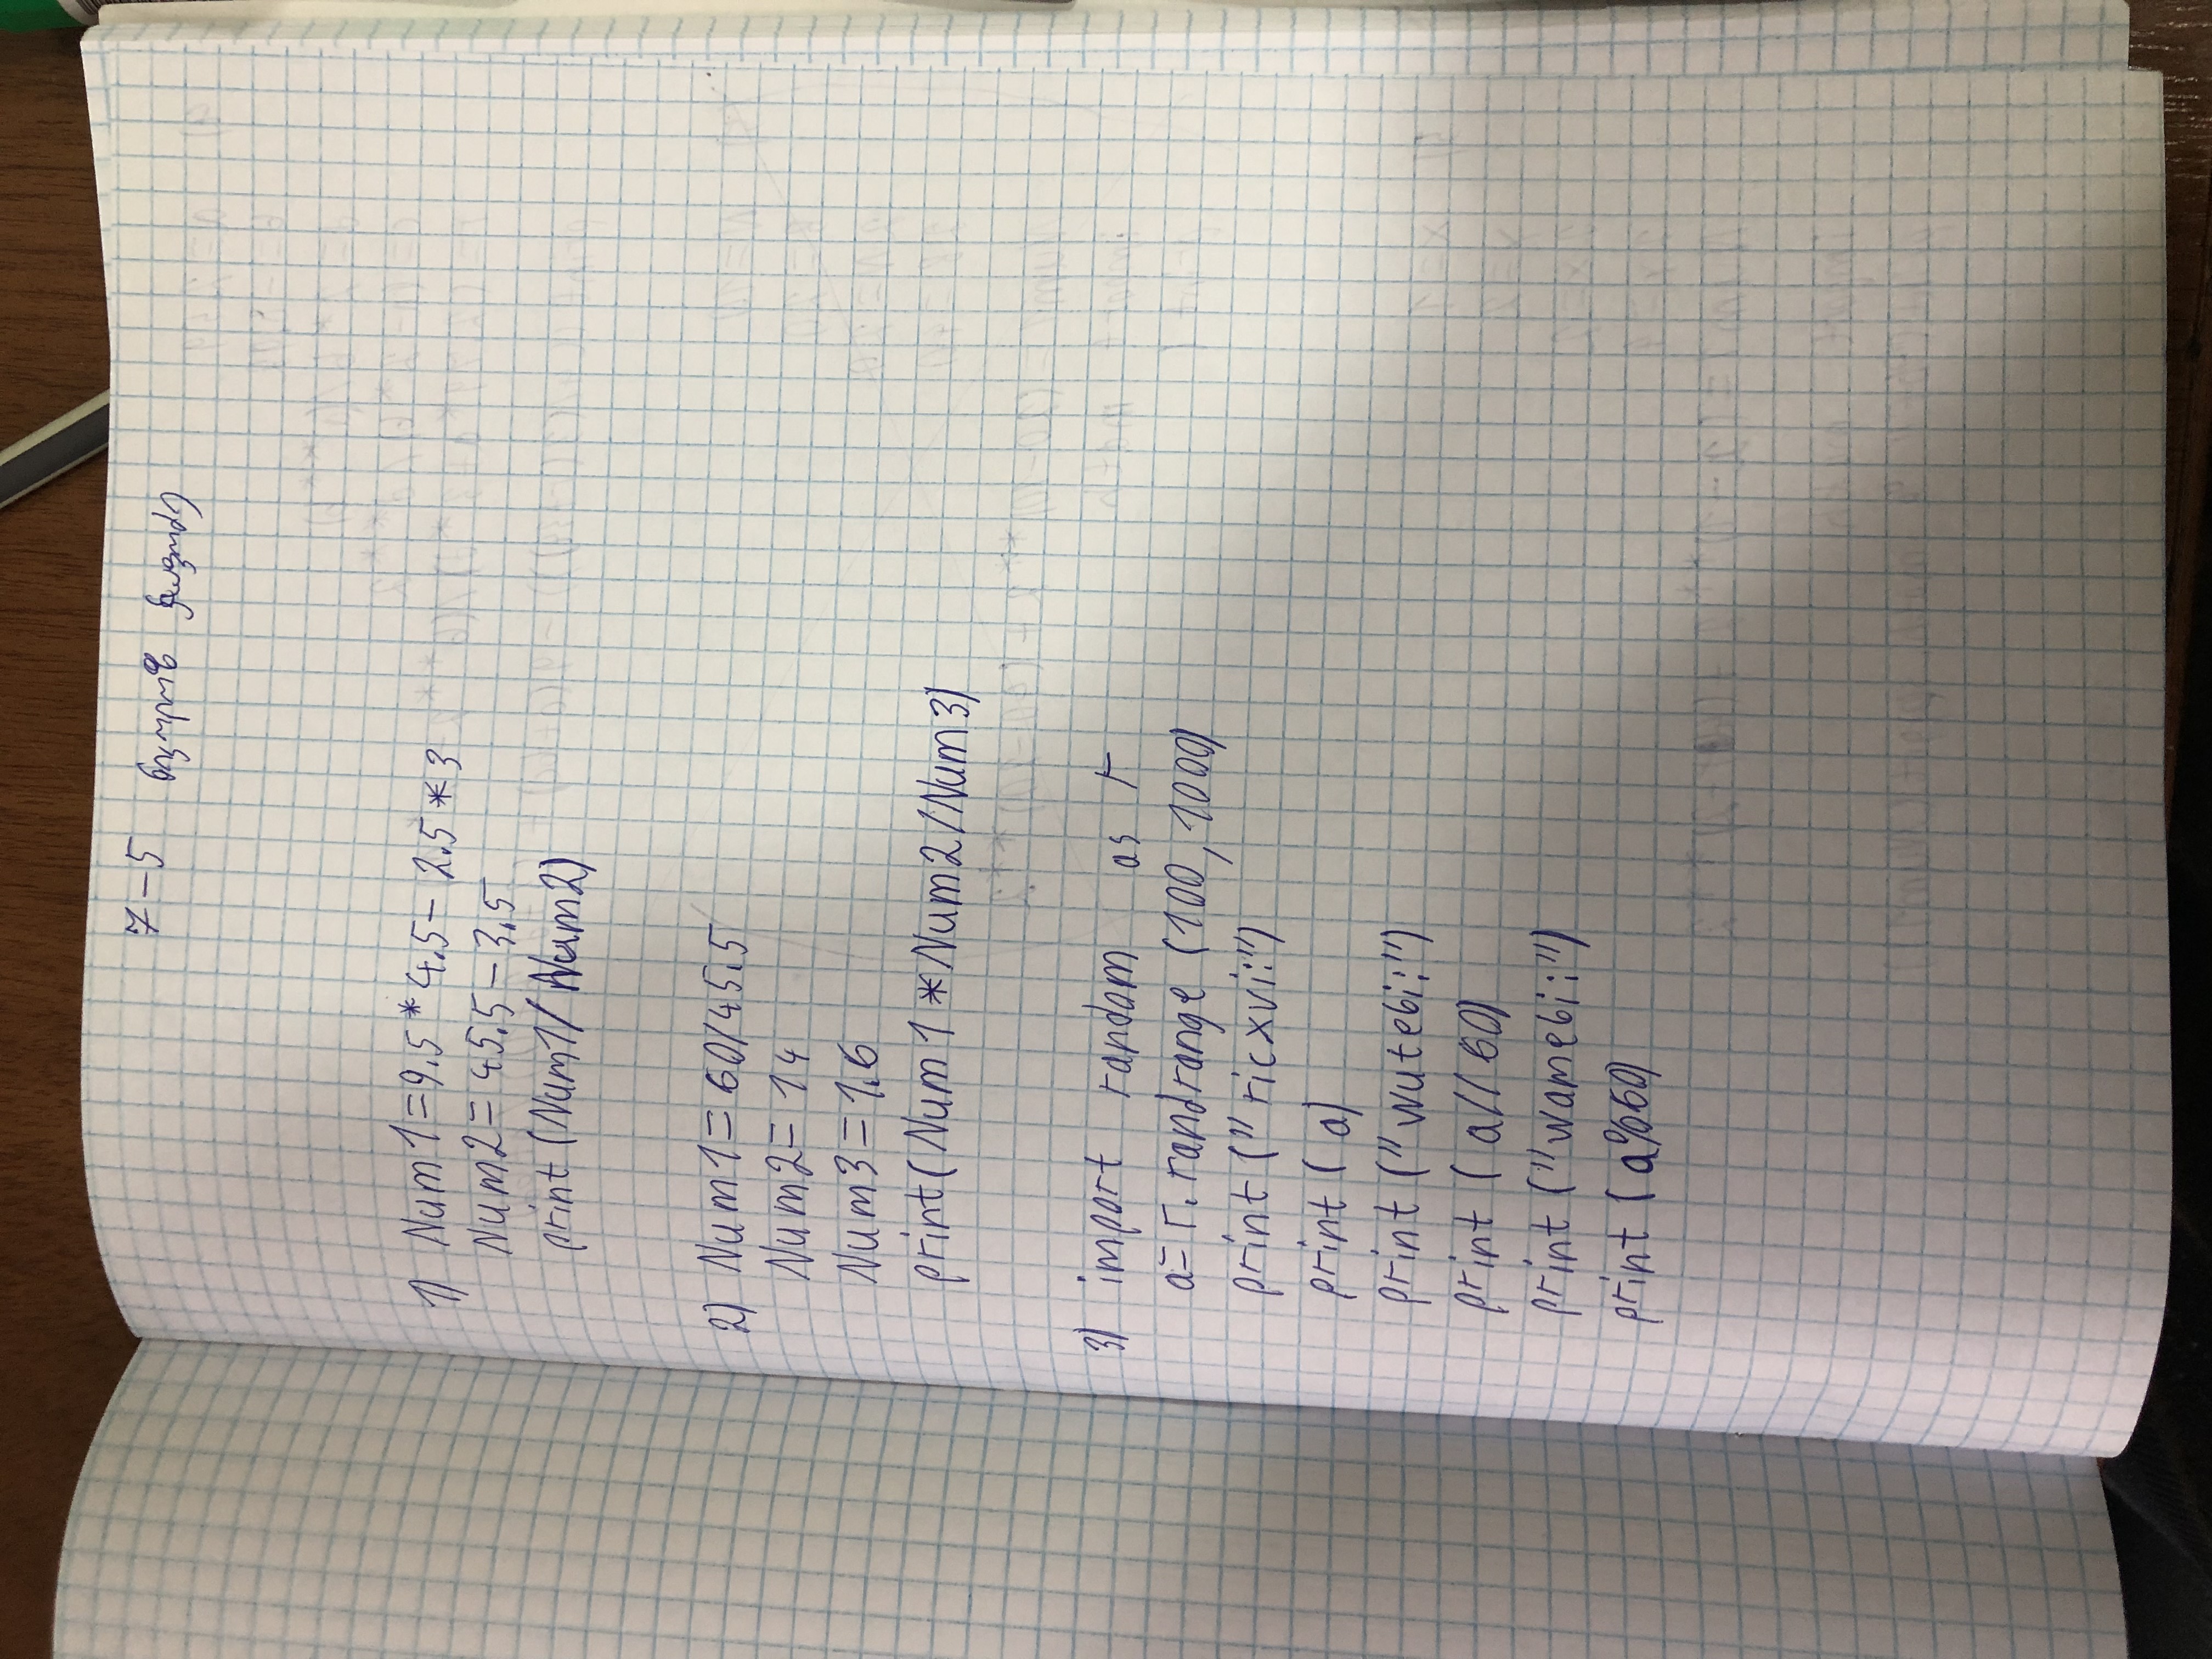 7-5
1) Num1=9.5*4.5-2.5*3
Num2=45.5-3.5
print (Num1/Num2)
2) Num1=60/45.5
Num2=14
Num3=1.6
print(Num1*Num2/Num3)
3) import random as r
a=r.randrange (100, 1000)
print ("ricxvi:")
print (a)
print ("wutebi:")
print (a//60)
print ("wamebi:")
print (a%60)